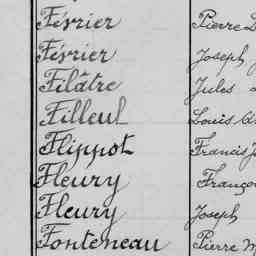 Février Pierre
Février Joseph
Filâtre Jules
Filleul Louis
Flippot Francis
Fleury
Fleury Joseph
Fonteneau Pierre